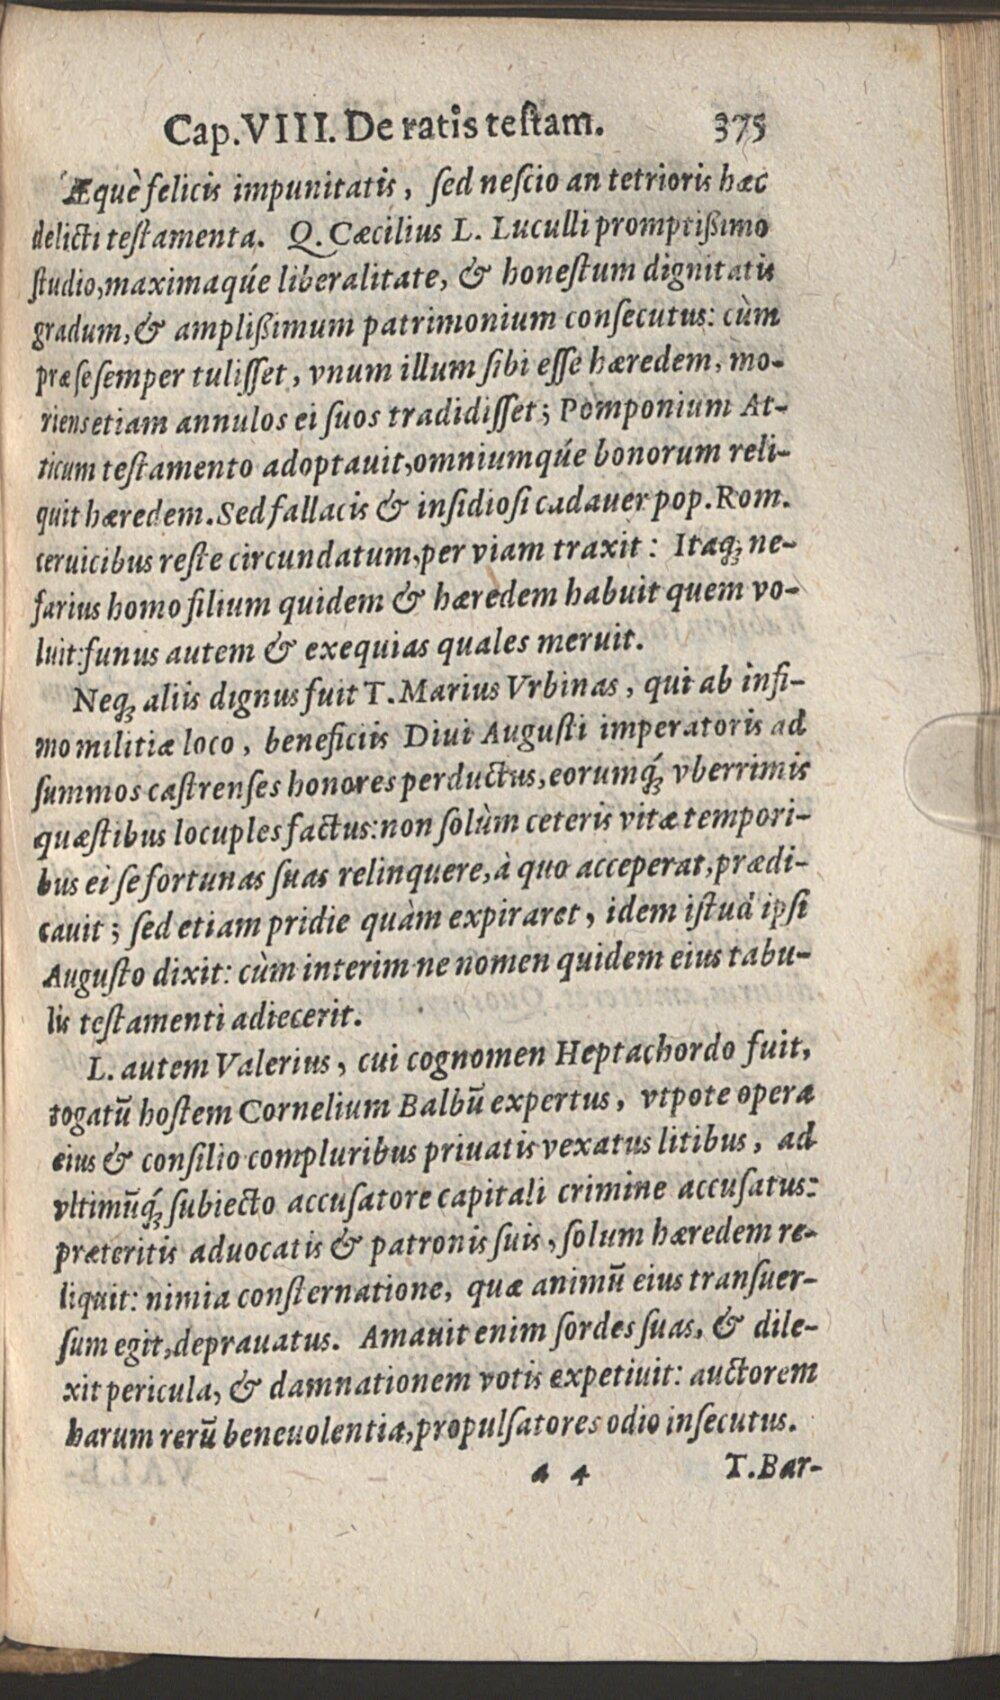 Cap. VIII. De ratis testam. 375
Æquè felicis impunitatis, sed nescio an tetrioris hæc
delicti testamenta. Q. Cæcilius L. Luculli promptißimo
studio, maximaqúe liberalitate, & honestum dignitatis
gradum, & amplißimum patrimonium consecutus: cùm
præ se semper tulisset, vnum illum sibi esse hæredem, mo-
riens etiam annulos ei suos tradidisset; Pomponium At-
ticum testamento adoptauit, omniumqúe bonorum reli-
quit hæredem. Sed fallacis & insidiosi cadauer pop. Rom.
ceruicibus reste circundatum, per viam traxit: Itaq; ne-
farius homo filium quidem & hæredem habuit quem vo-
luit: funus autem & exequias quales meruit.
Neq; aliis dignus fuit T. Marius Vrbinas, qui ab infi-
mo militiæ loco, beneficiis Diui Augusti imperatoris ad
summos castrenses honores perductus, eorumq́; vberrimis
quæstibus locuples factus: non solùm ceteris vitæ tempori-
bus ei se fortunas suas relinquere, à quo acceperat, prædi-
cauit; sed etiam pridie quàm expiraret, idem istud ipsi
Augusto dixit: cùm interim ne nomen quidem eius tabu-
lis testamenti adiecerit.
L. autem Valerius, cui cognomen Heptachordo fuit,
togatū hostem Cornelium Balbū expertus, vtpote opera
eius & consilio compluribus priuatis vexatus litibus, ad
vltimūq́; subiecto accusatore capitali crimine accusatus:
præteritis aduocatis & patronis suis, solum hæredem re-
liquit: nimia consternatione, quæ animū eius transuer-
sum egit, deprauatus. Amauit enim sordes suas, & dile-
xit pericula, & damnationem votis expetiuit: auctorem
harum rerū beneuolentia, propulsatores odio insecutus.
a 4 T. Bar-